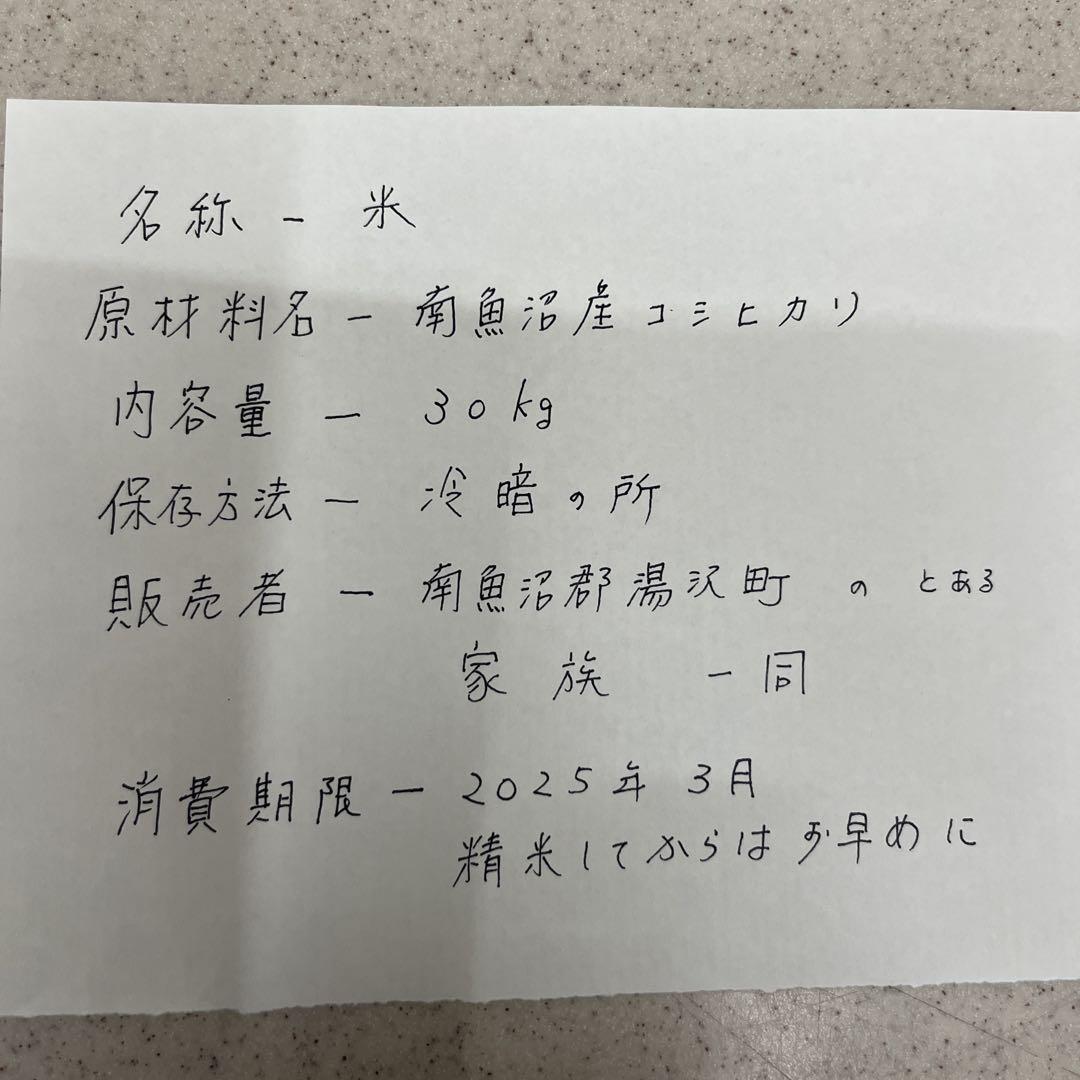 名称 - 米
原材料名 - 南魚沼産コシヒカリ
内容量 - 30kg
保存方法 - 冷暗の所
販売者 - 南魚沼郡湯沢町 の とある
家族 一同
消費期限 - 2025年 3月
精米してからはお早めに